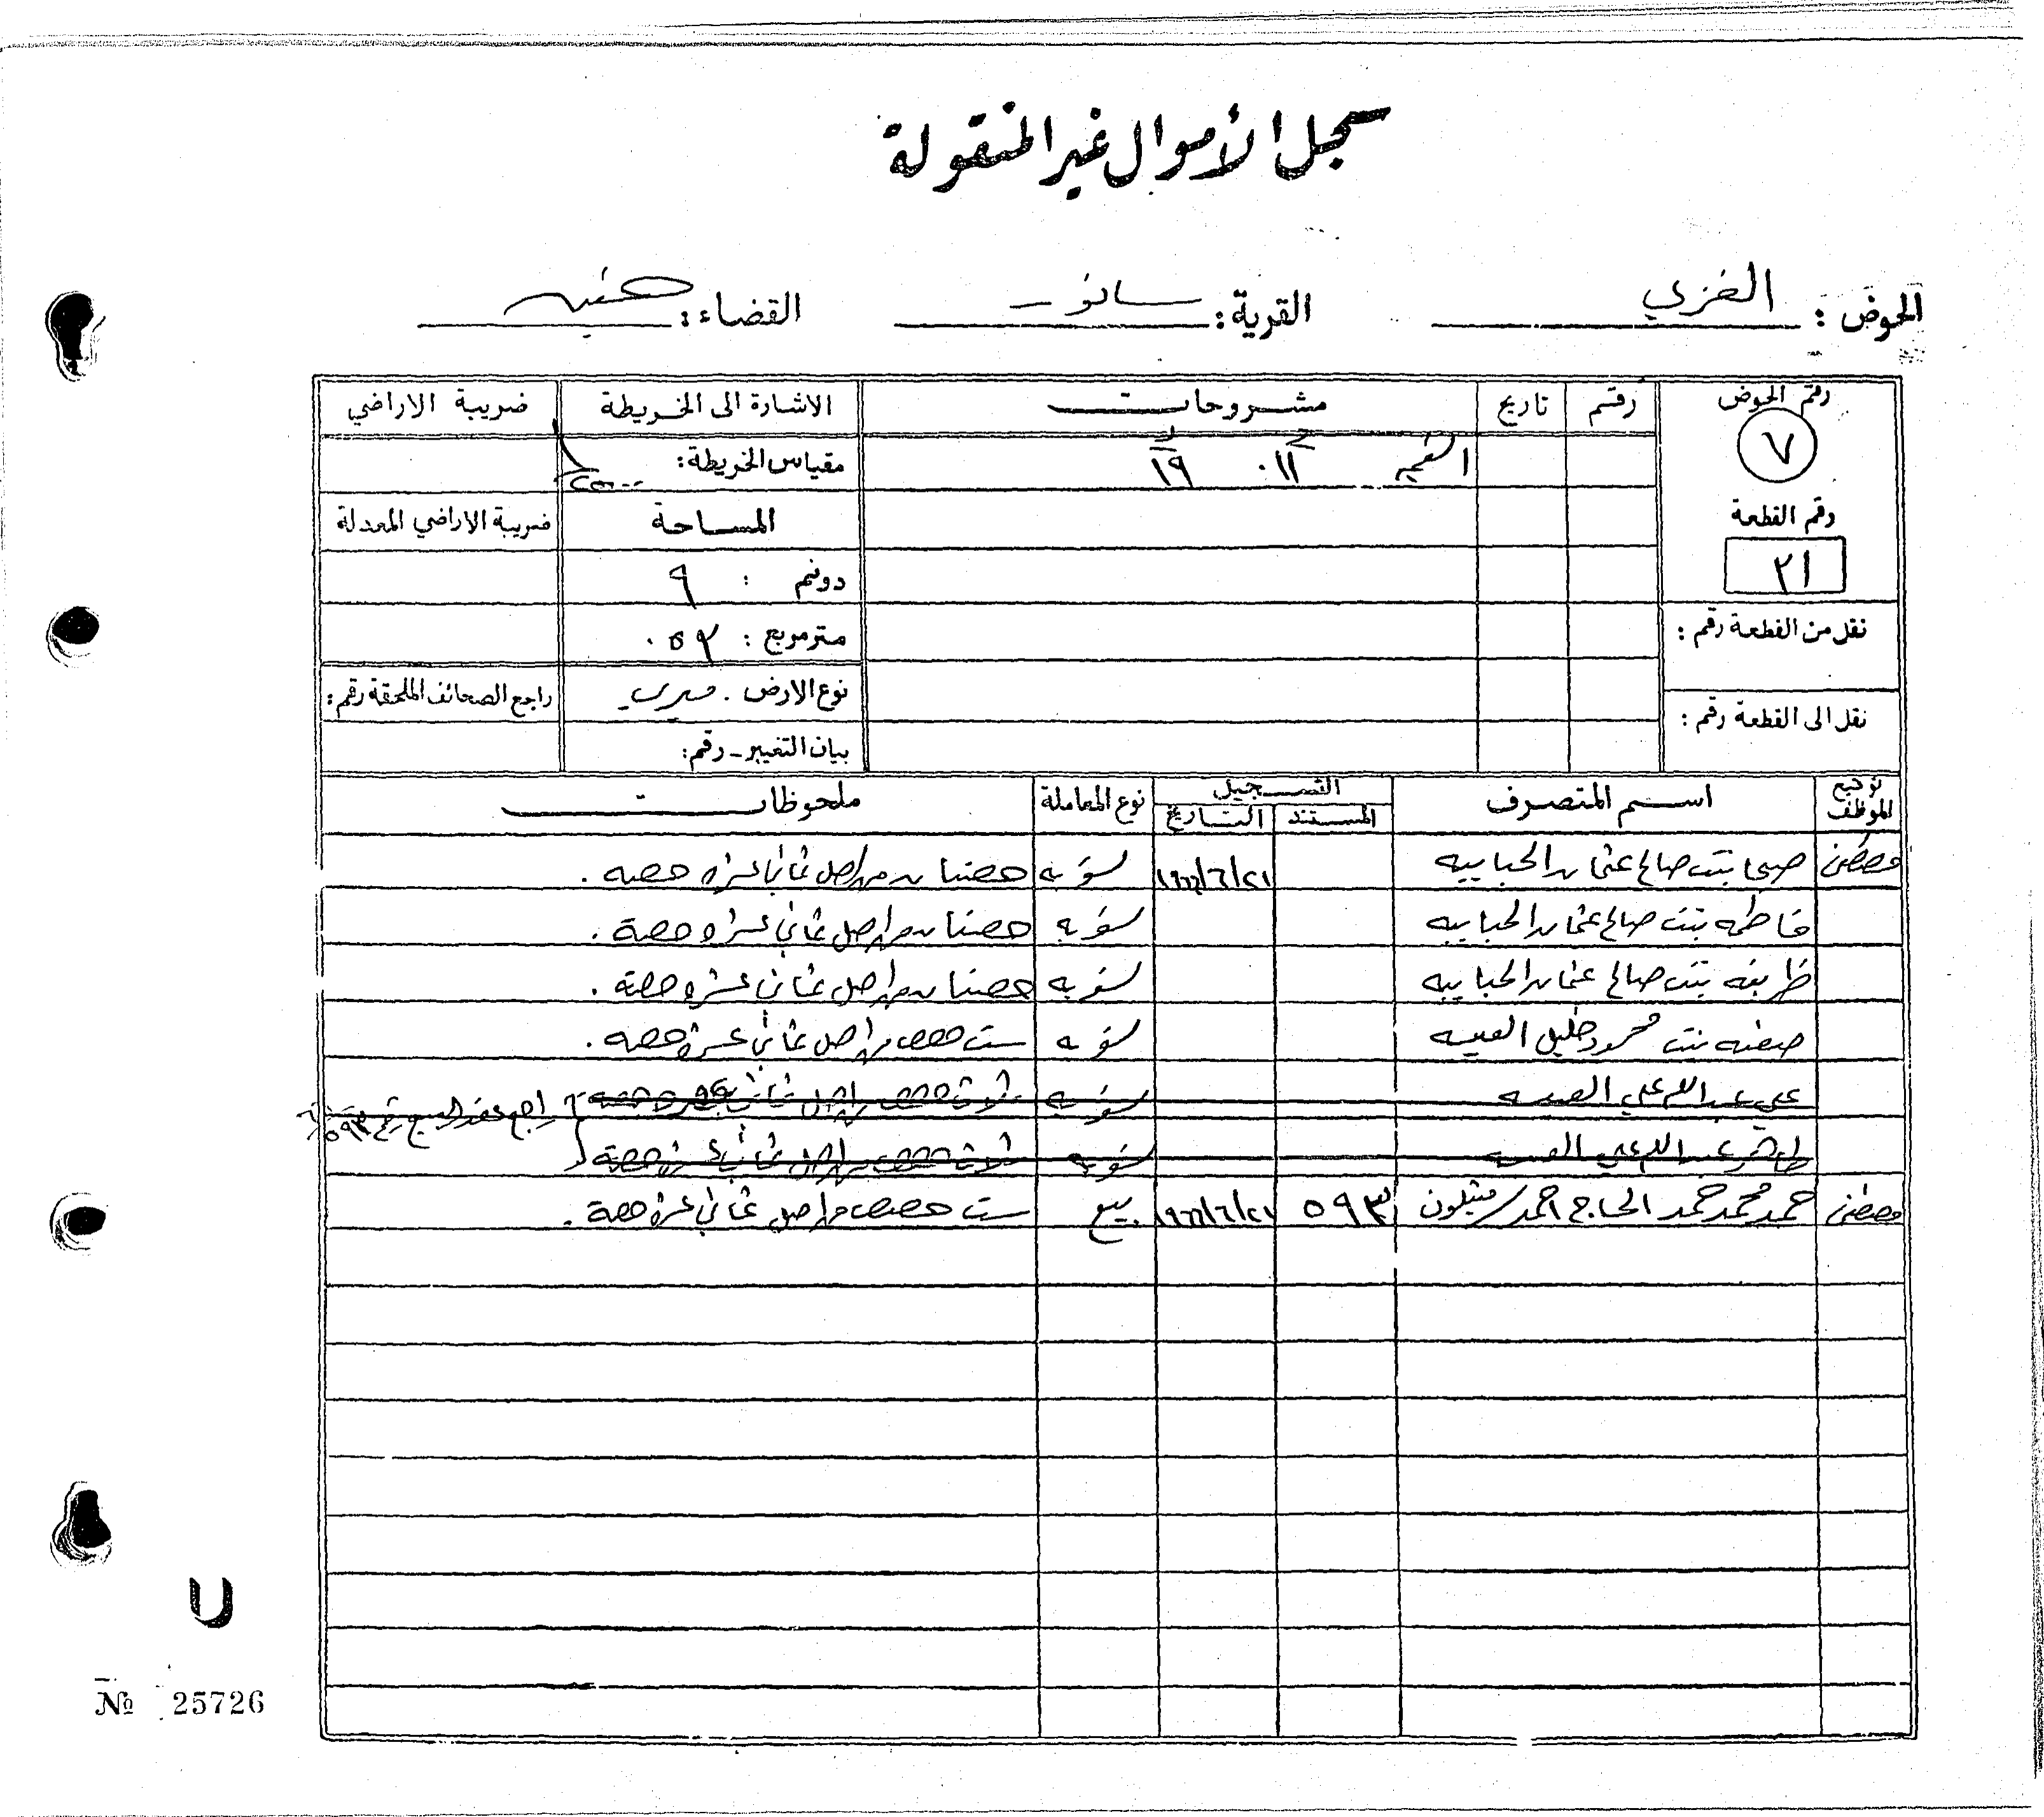 سجل الأموال غير المنقولة
الحوض : الغزي القرية : سانور القضاء : جنين
رقم الحوض رقم تاريخ مشروحات الاشارة الى الخريطة ضريبة الاراضي
٧ مقياس الخريطة :
التقييم ١١ ١٩
رقم القطعة المساحة ضريبة الاراضي المعدلة
٢١ دونم : ٩
نقل من القطعة رقم : متر مربع : ٠٥٢
نوع الارض . ميري راجع الصحائف الملحقة رقم :
نقل الى القطعة رقم :
بيان التغيير - رقم :
توقيع الموظف اسم المتصرف التسجيل نوع المعاملة ملحوظات
المستند التاريخ
مصطفى صبحا بنت صالح عثمان الحبايبه ١٩٦٦/٦/٢١ تسوية حصتان من اصل ثماني عشرة حصه .
فاطمه بنت صالح عثمان الحبايبه تسوية حصتان من اصل ثماني عشرة حصة .
ظريفه بنت صالح عثمان الحبايبه تسوية حصتان من اصل ثماني عشرة حصة .
بنت محمود خليل العيسه تسوية ست حصص من اصل ثماني عشرة حصه .
علي عبدالله علي العيسه تسوية ثلاث حصص من اصل ثماني عشرة حصه راجع عقد البيع رقم ٥٩٣
طاهر عبدالله علي العيسه تسوية ثلاث حصص من اصل ثماني عشرة حصة
مصطفى حمد محمد حمد الحاج احمد ٥٩٣ ١٩٦٦/٦/٢١ بيع ست حصص من اصل ثماني عشرة حصة .
№ 25726